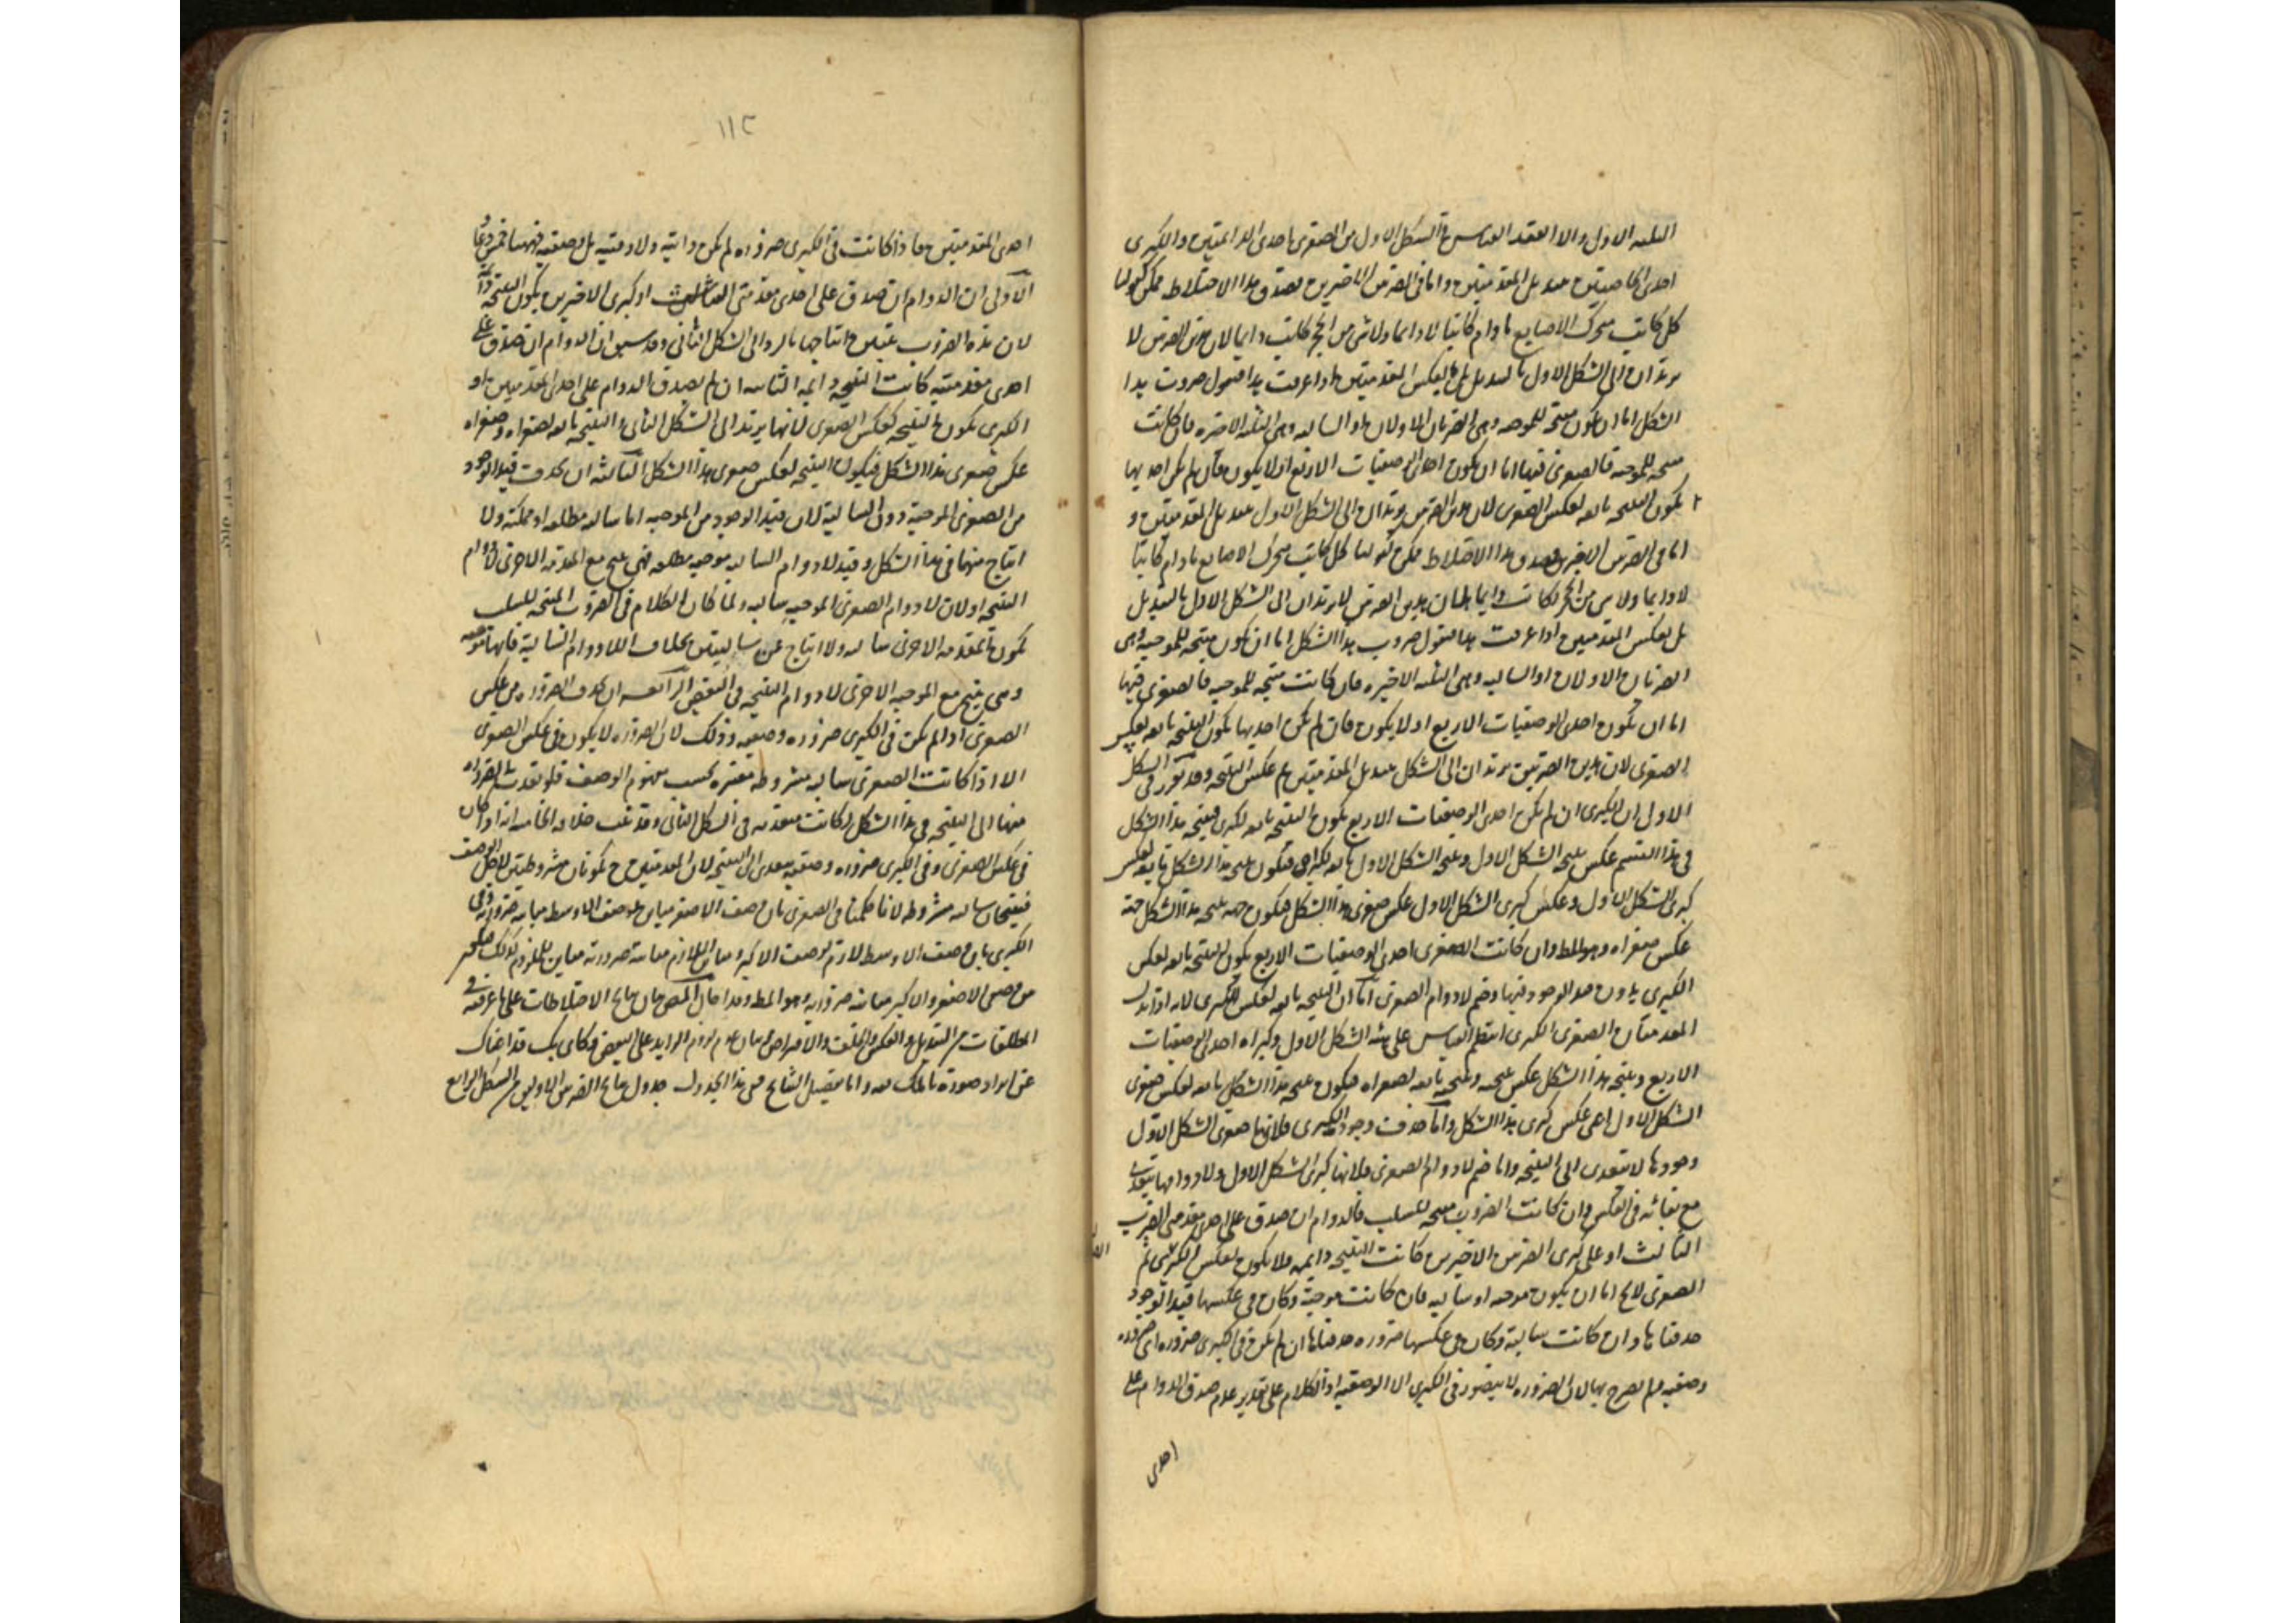 الثلثه الاول والا انعقد القياس فى الشكل الاول من الصغرى احدى الدائمتين والكبرى
احدى الخاصيتين عند بدل المقدمتين واما فى الضربين الاخيرين بصدق هذا الاختلاط ممكن كقولنا
كل كاتب متحرك الاصابع ما دام كاتبا لا دايما ولا شى من الحجر بكاتب دايما لان هذين الضربين لا
يرتدان الى الشكل الاول بالتبديل بل بعكس المقدمتين اذا عرفت هذا فنقول ضروب هذا
الشكل اما ان يكون منتجه للموجبه وهى الضربان الاولان او السالبه وهى الثلثه الاخيره فان كانت
منتجه للموجبه فالصغرى فيها اما ان يكون احدى الوصفيات الاربع او لا يكون فان لم يكن احديها
يكون النتيجه تابعه لعكس الصغرى لان هذين الضربين يرتدان الى الشكل الاول عند بدل المقدمتين و
اما فى الضربين الاخيرين فصدق هذا الاختلاط ممكن كقولنا كل كاتب متحرك الاصابع ما دام كاتبا
لا دايما ولا شى من الحجر بكاتب دايما لان هذين الضربين لا يرتدان الى الشكل الاول بالتبديل
بل بعكس المقدمتين اذا عرفت هذا فنقول ضروب هذا الشكل اما ان يكون منتجه للموجبه وهى
الضربان الاولان او السالبه وهى الثلثه الاخيره فان كانت منتجه للموجبه فالصغرى فيها
اما ان يكون احدى الوصفيات الاربع او لا يكون فان لم يكن احديها يكون النتيجه تابعه لعكس
الصغرى لان هذين الضربين يرتدان الى الشكل بتبديل المقدمتين ثم عكس النتيجه وقد تقرر فى الشكل
الاول ان الكبرى ان لم يكن احدى الوصفيات الاربع يكون النتيجه تابعه لكبرى فنتيجه هذا الشكل
فى هذا القسم عكس نتيجه الشكل الاول ونتيجه الشكل الاول تابعه لكبراه فيكون نتيجه هذا الشكل تابعه لعكس
كبرى الشكل الاول وعكس كبرى الشكل الاول عكس صغرى هذا الشكل فيكون جهه نتيجه هذا الشكل جهه
عكس صغراه وهو المط وان كانت الصغرى احدى الوصفيات الاربع يكون النتيجه تابعه لعكس
الكبرى بدون قيد الوجود فيها وضم لا دوام الصغرى اما ان النتيجه تابعه لعكس الكبرى لانه اذا بدل
المقدمتان الصغرى الكبرى انتظم القياس على هيئة الشكل الاول وكبراه احدى الوصفيات
الاربع ونتيجه هذا الشكل عكس نتيجه ونتيجه تابعه لصغراه فيكون نتيجه هذا الشكل تابعه لعكس صغرى
الشكل الاول اعنى عكس كبرى هذا الشكل واما حذف وجود الكبرى فلانها صغرى الشكل الاول
وجودها لا يتعدى الى النتيجه واما ضم لا دوام الصغرى فلانها كبرى الشكل الاول ولا دوامها يتعدى
مع بقائه فى العكس وان كانت الضروب منتجه للسلب فالدوام ان صدق على احدى مقدمتى الضرب
الثالث او على كبرى الضربين الاخيرين كانت النتيجه دايمه والا يكون لعكس الصغرى ثم
الصغرى لا يخ اما ان يكون موجبه او سالبه فان كانت موجبه وكان فى عكسها قيد الوجود
حذفناها وان كانت سالبة وكان فى عكسها ضروره حذفناها ان لم يكن فى الكبرى ضروره اى ضروره
وصفيه لم يصرح بها لان الضروره لا يتصور فى الكبرى الا الوصفيه اذ الكلام على تقدير عدم صدق الدوام على
احدى
١١٢
احدى المقدمتين فاذا كانت فى الكبرى ضروره لم يكن ذاتيه ولا وقتيه بل وصفيه فههنا خمس دعاو
الاولى ان الدوام ان صدق على احدى مقدمتى الضرب الثالث او كبرى الاخيرين يكون النتيجه دايمه
لان هذه الضروب يتبين انتاجها بالرد الى الشكل الثانى وقد سبق ان الدوام ان صدق على
احدى مقدمتيه كانت النتيجه دايمه الثانيه ان لم يصدق الدوام على احدى المقدمتين او
الكبرى يكون النتيجه كعكس الصغرى لانها يرتد الى الشكل الثانى والنتيجه تابعه لصغراه وصغراه
عكس صغرى هذا الشكل فيكون النتيجه كعكس صغرى هذا الشكل الثالثه ان يحذف قيد الوجود
من الصغرى الموجبة دون السالبة لان قيد الوجود من الموجبه اما سالبه مطلقه او ممكنه ولا
انتاج منهما فى هذا الشكل وقيد لا دوام السالبه موجبه مطلقه فهى ينتج مع المقدمه الاخرى لا دوام
النتيجه او لان لا دوام الصغرى الموجبه سالبه ولما كان الكلام فى الضروب المنتجه للسلب
يكون المقدمه الاخرى سالبه ولا انتاج عن سالبتين بخلاف اللا دوام السالبة فانها موجبه
وهى ينتج مع الموجبه الاخرى لا دوام النتيجه فى البعض الرابعه ان يحذف الضروره من عكس
الصغرى اذا لم يكن فى الكبرى ضروره وصفيه وذلك لان الضروره لا يكون فى عكس الصغرى
الا اذا كانت الصغرى سالبه مشروطه معتبره بحسب مفهوم الوصف فلو تعدت الضروره
منها الى النتيجه فى هذا الشكل لكانت متعديه فى الشكل الثانى وقد ثبت خلافه الخامسه انه اذا كان
فى عكس الصغرى وفى الكبرى ضروره وصفيه يتعدى الى النتيجه لان المقدمتين ح يكونان مشروطتين لاجل الوصف
فينتجان سالبه مشروطه لانا حكمنا فى الصغرى بان وصف الاصغر مباين لوصف الاوسط مباينه ضروريه وفى
الكبرى بان وصف الاوسط لازم لوصف الاكبر ومباين اللازم مباينه ضروريه مباين للملزوم كذلك فيكون
من وصفى الاصغر والاكبر مباينه ضروريه وهو المط وقد احال المص بيان نتايج الاختلاطات على ما عرفته فى
المطلقات من التبديل والعكس والخلف والافتراض وبيان عدم لزوم الزايد على البعض فكانى بك قد اغناك
عن ايراد صورة تا ملك فيه واما تفصيل النتايج فى هذا الجدول جدول نتايج الضربين الاولين من الشكل الرابع